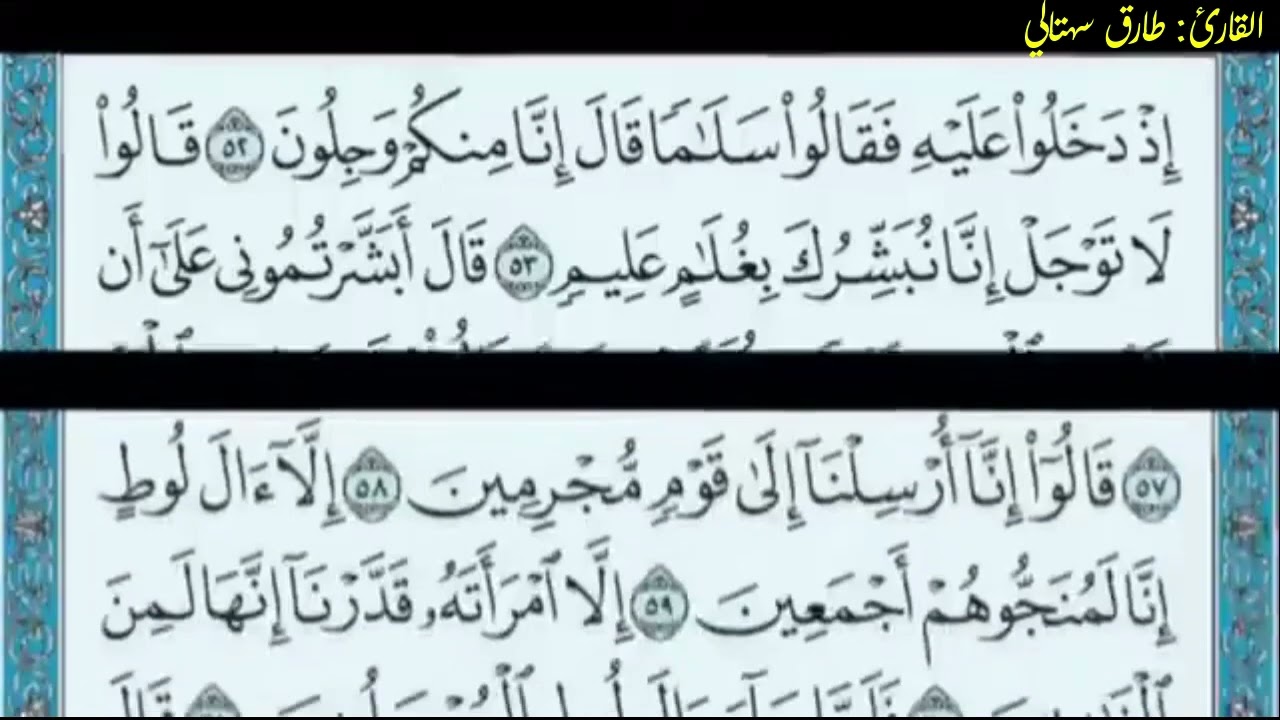 القارئ: طارق سهتالي
إِذْ دَخَلُوا۟ عَلَيْهِ فَقَالُوا۟ سَلَـٰمًا قَالَ إِنَّا مِنكُمْ وَجِلُونَ ٥٢ قَالُوا۟
لَا تَوْجَلْ إِنَّا نُبَشِّرُكَ بِغُلَـٰمٍ عَلِيمٍ ٥٣ قَالَ أَبَشَّرْتُمُونِى عَلَىٰٓ أَن
٥٧ قَالُوٓا۟ إِنَّآ أُرْسِلْنَآ إِلَىٰ قَوْمٍ مُّجْرِمِينَ ٥٨ إِلَّآ ءَالَ لُوطٍ
إِنَّا لَمُنَجُّوهُمْ أَجْمَعِينَ ٥٩ إِلَّا ٱمْرَأَتَهُۥ قَدَّرْنَآ إِنَّهَا لَمِنَ